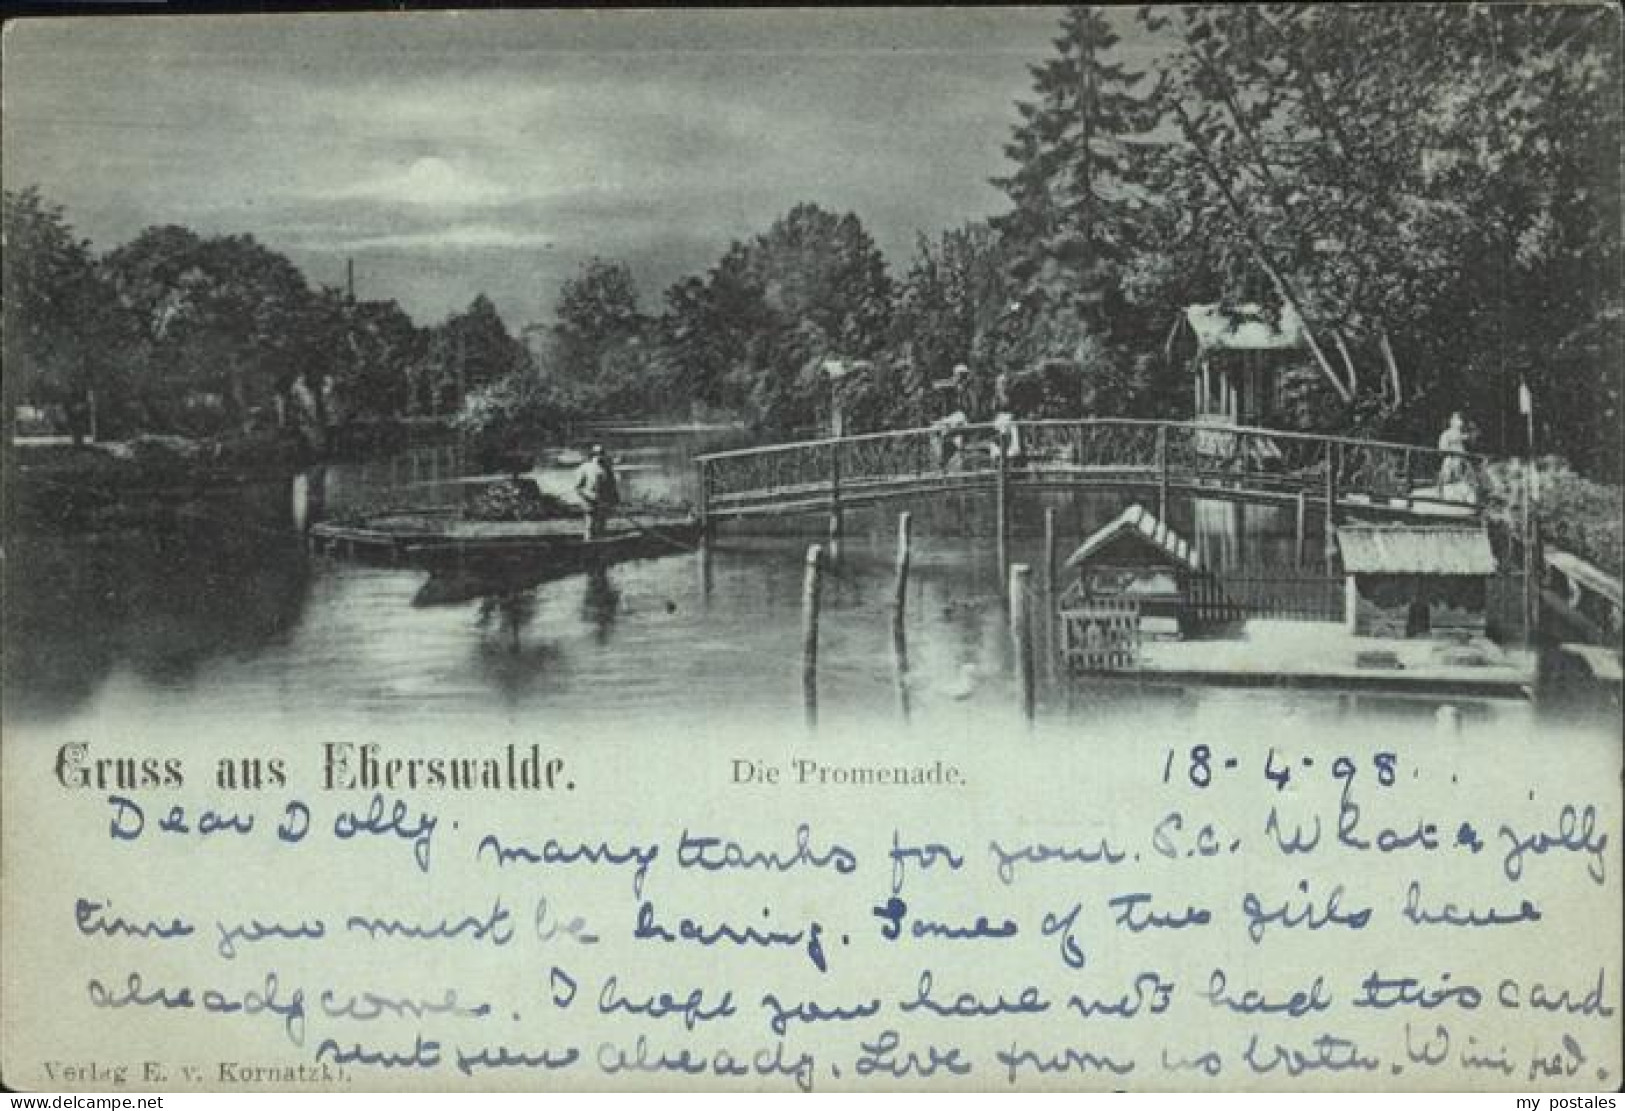 Gruss aus Eberswalde.
Die Promenade.
18-4-98.
Dear Dolly.
many thanks for your. P.C. What a jolly
time you must be having. Some of the girls have
already come. I hope you have not had this card
sent you already. Love from us both. Winifred.
Verlag E. v. Kornatzki.
www.delcampe.net
my postales